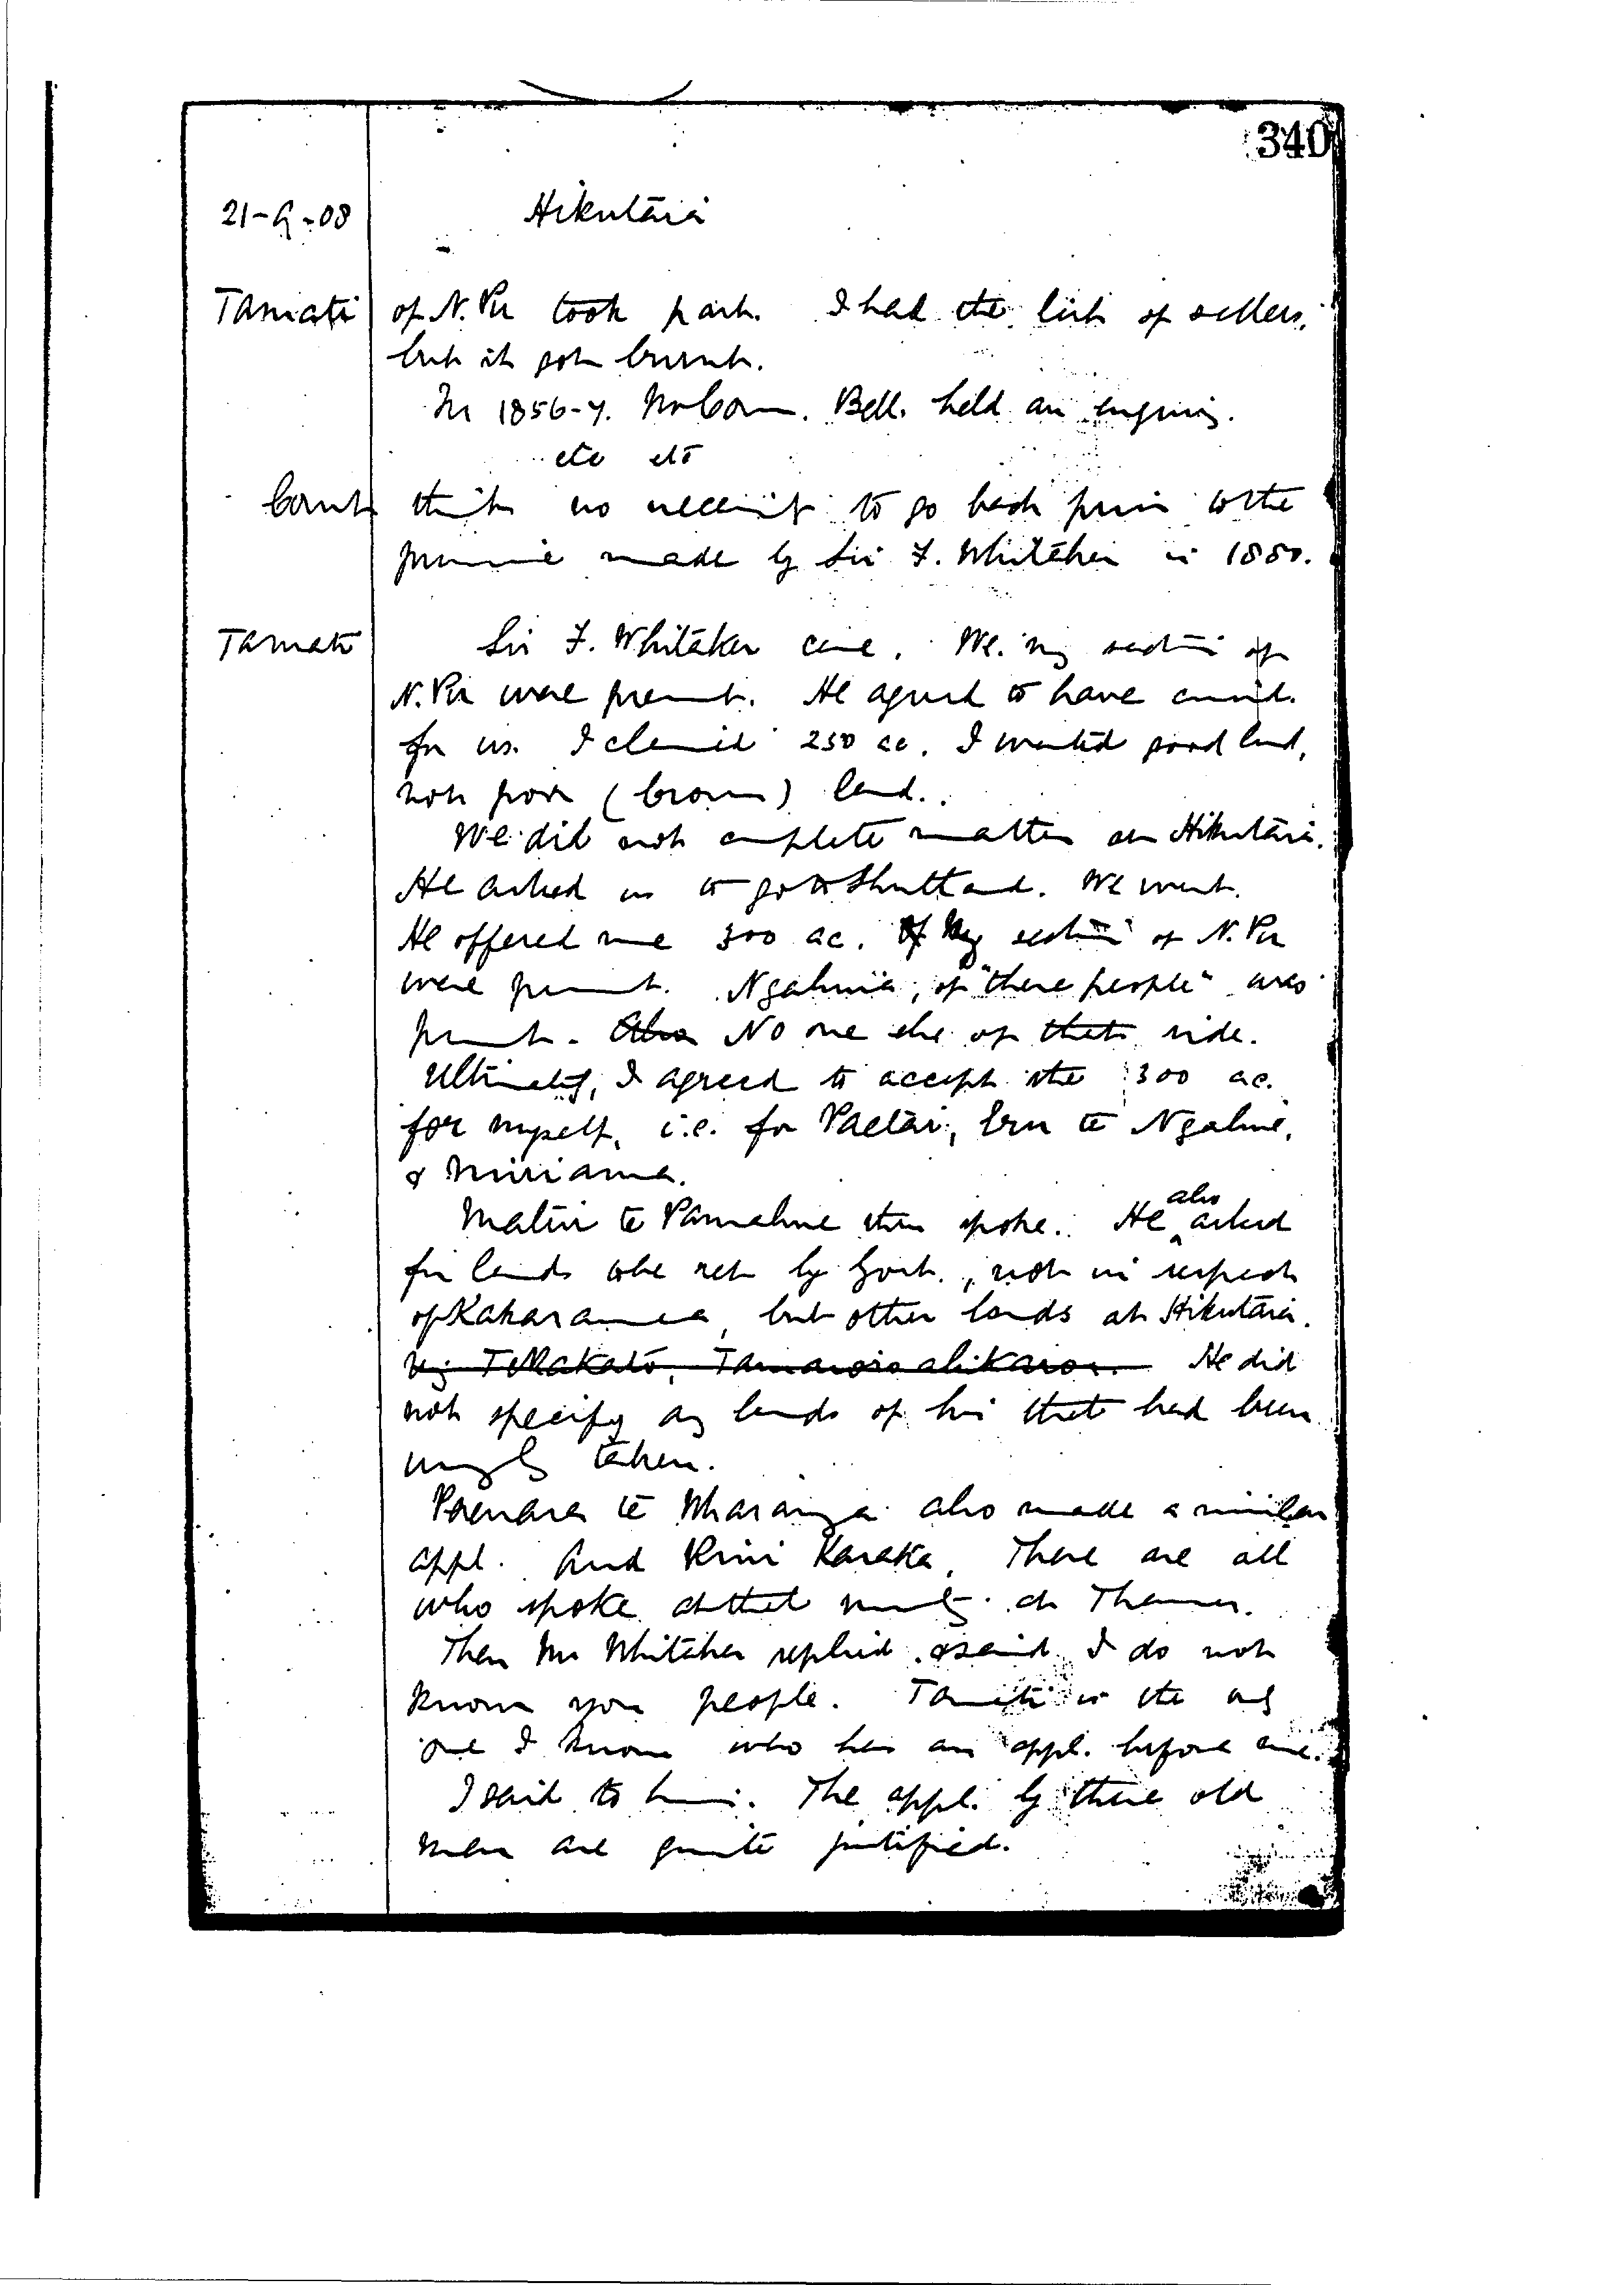 340
21-9-08 Hikutaia
Tamati of N. Pu took part. I had the list of sellers,
but it got burnt.
In 1856-7. Mr Com. Bell. held an enquiry.
etc etc
Court think no necessity to go back prior to the
promise made by Sir F. Whitaker in 1880.
Tamati Sir F. Whitaker came. We. my section of
N. Pu were present. He agreed to have
for us. I claimed 250 ac. I wanted good land,
not poor (brown) land.
We did not complete matter at Hikutaia.
He asked us to go to Shortland. We went.
He offered me 300 ac. My section of N. Pu
were present. of "these people" was
present. Also No one else of that side.
Ultimately, I agreed to accept the 300 ac.
for myself, i.e. for Paetai, Eru te Ngahue,
& Miriama.
Matiu te then spoke. He also asked
for lands to be ret. by Govt., not in respect
of Kakaramea, but other lands at Hikutaia.
viz He did
not specify any lands of his that had been
wrongly taken.
te Wharanga also made a similar
appl. And Karaka. These are all
who spoke at that meeting at Thames.
Then Mr Whitaker replied & said I do not
know you people. Tamati is the only
one I know who has an appl. before me.
I said to him. The appl. by these old
men are quite justified.